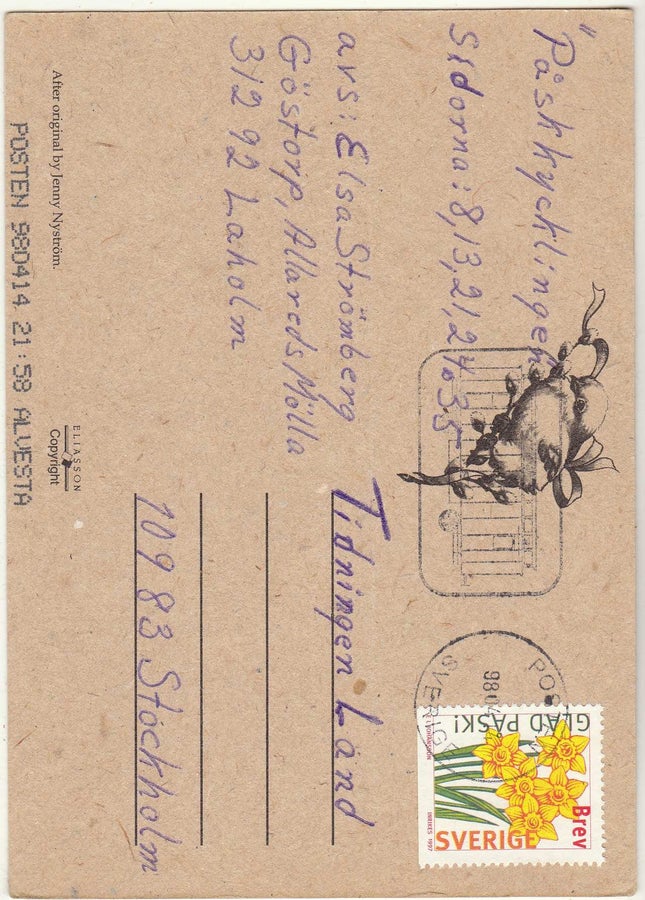 "Påskkycklingen
Sidorna: 8, 13, 21, 24 o. 35
avs: Elsa Strömberg
Göstorp, Allareds Mölla
312 92 Laholm
Tidningen Land
109 83 Stockholm
After original by Jenny Nyström.
ELIASSON
Copyright
POSTEN 980414 21:58 ALVESTA
SVERIGE
GLAD PÅSK!
Brev
SVERIGE
INRIKES 1997